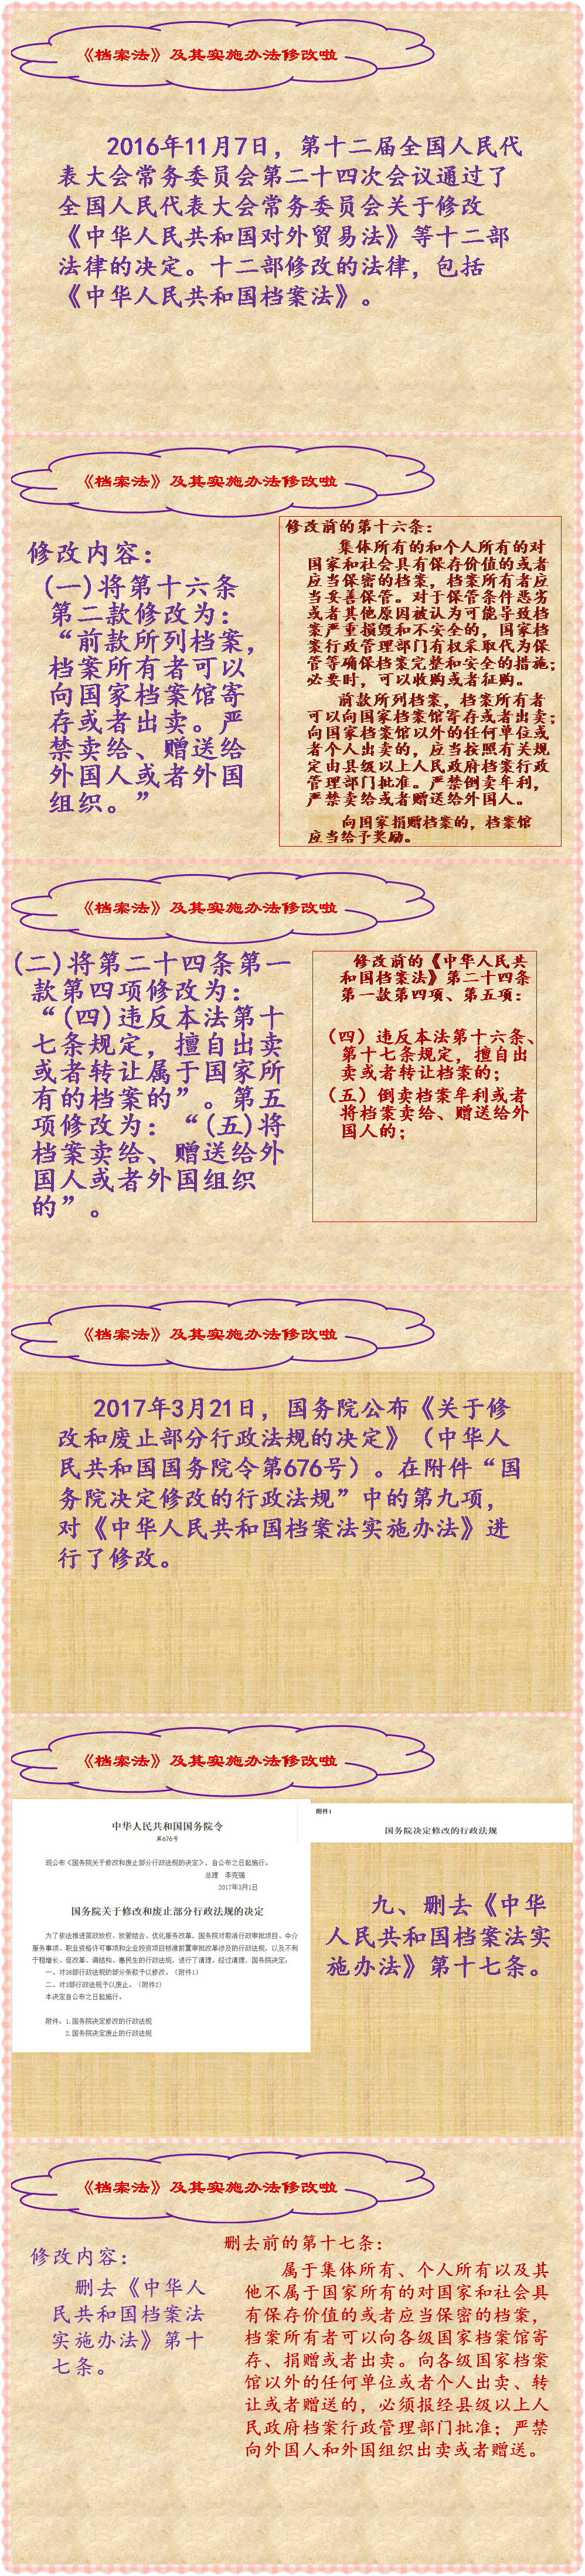 《档案法》及其实施办法修改啦
2016年11月7日，第十二届全国人民代
表大会常务委员会第二十四次会议通过了
全国人民代表大会常务委员会关于修改
《中华人民共和国对外贸易法》等十二部
法律的决定。十二部修改的法律，包括
《中华人民共和国档案法》。
《档案法》及其实施办法修改啦
修改内容：
(一)将第十六条
第二款修改为：
“前款所列档案，
档案所有者可以
向国家档案馆寄
存或者出卖。严
禁卖给、赠送给
外国人或者外国
组织。”
修改前的第十六条：
集体所有的和个人所有的对
国家和社会具有保存价值的或者
应当保密的档案，档案所有者应
当妥善保管。对于保管条件恶劣
或者其他原因被认为可能导致档
案严重损毁和不安全的，国家档
案行政管理部门有权采取代为保
管等确保档案完整和安全的措施；
必要时，可以收购或者征购。
前款所列档案，档案所有者
可以向国家档案馆寄存或者出卖；
向国家档案馆以外的任何单位或
者个人出卖的，应当按照有关规
定由县级以上人民政府档案行政
管理部门批准。严禁倒卖牟利，
严禁卖给或者赠送给外国人。
向国家捐赠档案的，档案馆
应当给予奖励。
《档案法》及其实施办法修改啦
(二)将第二十四条第一
款第四项修改为：
“(四)违反本法第十
七条规定，擅自出卖
或者转让属于国家所
有的档案的”。第五
项修改为：“(五)将
档案卖给、赠送给外
国人或者外国组织
的”。
修改前的《中华人民共
和国档案法》第二十四条
第一款第四项、第五项：
（四）违反本法第十六条、
第十七条规定，擅自出
卖或者转让档案的；
（五）倒卖档案牟利或者
将档案卖给、赠送给外
国人的；
《档案法》及其实施办法修改啦
2017年3月21日，国务院公布《关于修
改和废止部分行政法规的决定》（中华人
民共和国国务院令第676号）。在附件“国
务院决定修改的行政法规”中的第九项，
对《中华人民共和国档案法实施办法》进
行了修改。
《档案法》及其实施办法修改啦
中华人民共和国国务院令
第676号
现公布《国务院关于修改和废止部分行政法规的决定》，自公布之日起施行。
总理　李克强
2017年3月1日
国务院关于修改和废止部分行政法规的决定
为了依法推进简政放权、放管结合、优化服务改革，国务院对取消行政审批项目、中介
服务事项、职业资格许可事项和企业投资项目核准前置审批改革涉及的行政法规，以及不利
于稳增长、促改革、调结构、惠民生的行政法规，进行了清理。经过清理，国务院决定：
一、对36部行政法规的部分条款予以修改。（附件1）
二、对3部行政法规予以废止。（附件2）
本决定自公布之日起施行。
附件：1.国务院决定修改的行政法规
2.国务院决定废止的行政法规
附件1
国务院决定修改的行政法规
九、删去《中华
人民共和国档案法实
施办法》第十七条。
《档案法》及其实施办法修改啦
修改内容：
删去《中华人
民共和国档案法
实施办法》第十
七条。
删去前的第十七条：
属于集体所有、个人所有以及其
他不属于国家所有的对国家和社会具
有保存价值的或者应当保密的档案，
档案所有者可以向各级国家档案馆寄
存、捐赠或者出卖。向各级国家档案
馆以外的任何单位或者个人出卖、转
让或者赠送的，必须报经县级以上人
民政府档案行政管理部门批准；严禁
向外国人和外国组织出卖或者赠送。